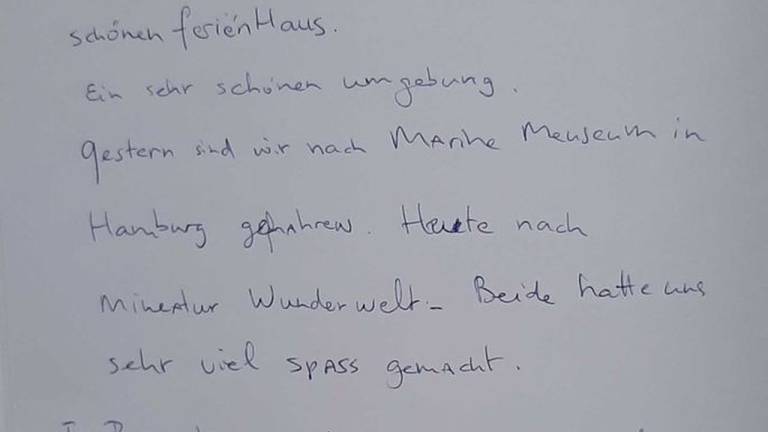 schönen ferienHaus.
Ein sehr schönen umgebung.
gestern sind wir nach Marine Meuseum in
Hamburg gefahren. Heute nach
Mineatur Wunderwelt. Beide hatte uns
sehr viel spass gemacht.